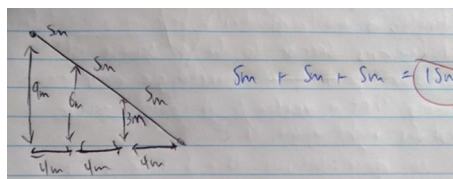 5m
5m
5m
9m
6m
3m
4m
4m
4m
5m + 5m + 5m = 15m